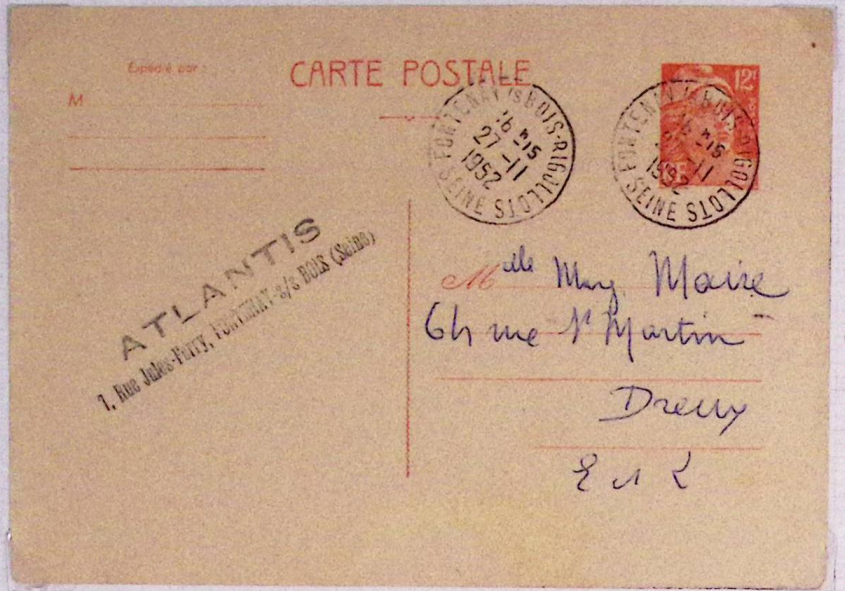 Expédié par :
CARTE POSTALE
M
12f
FONTENAY Is BOIS-RIGOLLOTS
16 h 15
27 -11
1952
SEINE
FONTENAY Is BOIS-RIGOLLOTS
16 h 15
-11
1952
SEINE
ATLANTIS
7, Rue Jules-Ferry, FONTENAY-s/s BOIS (Seine)
Melle Maire
rue St Martin
Dreux
E &